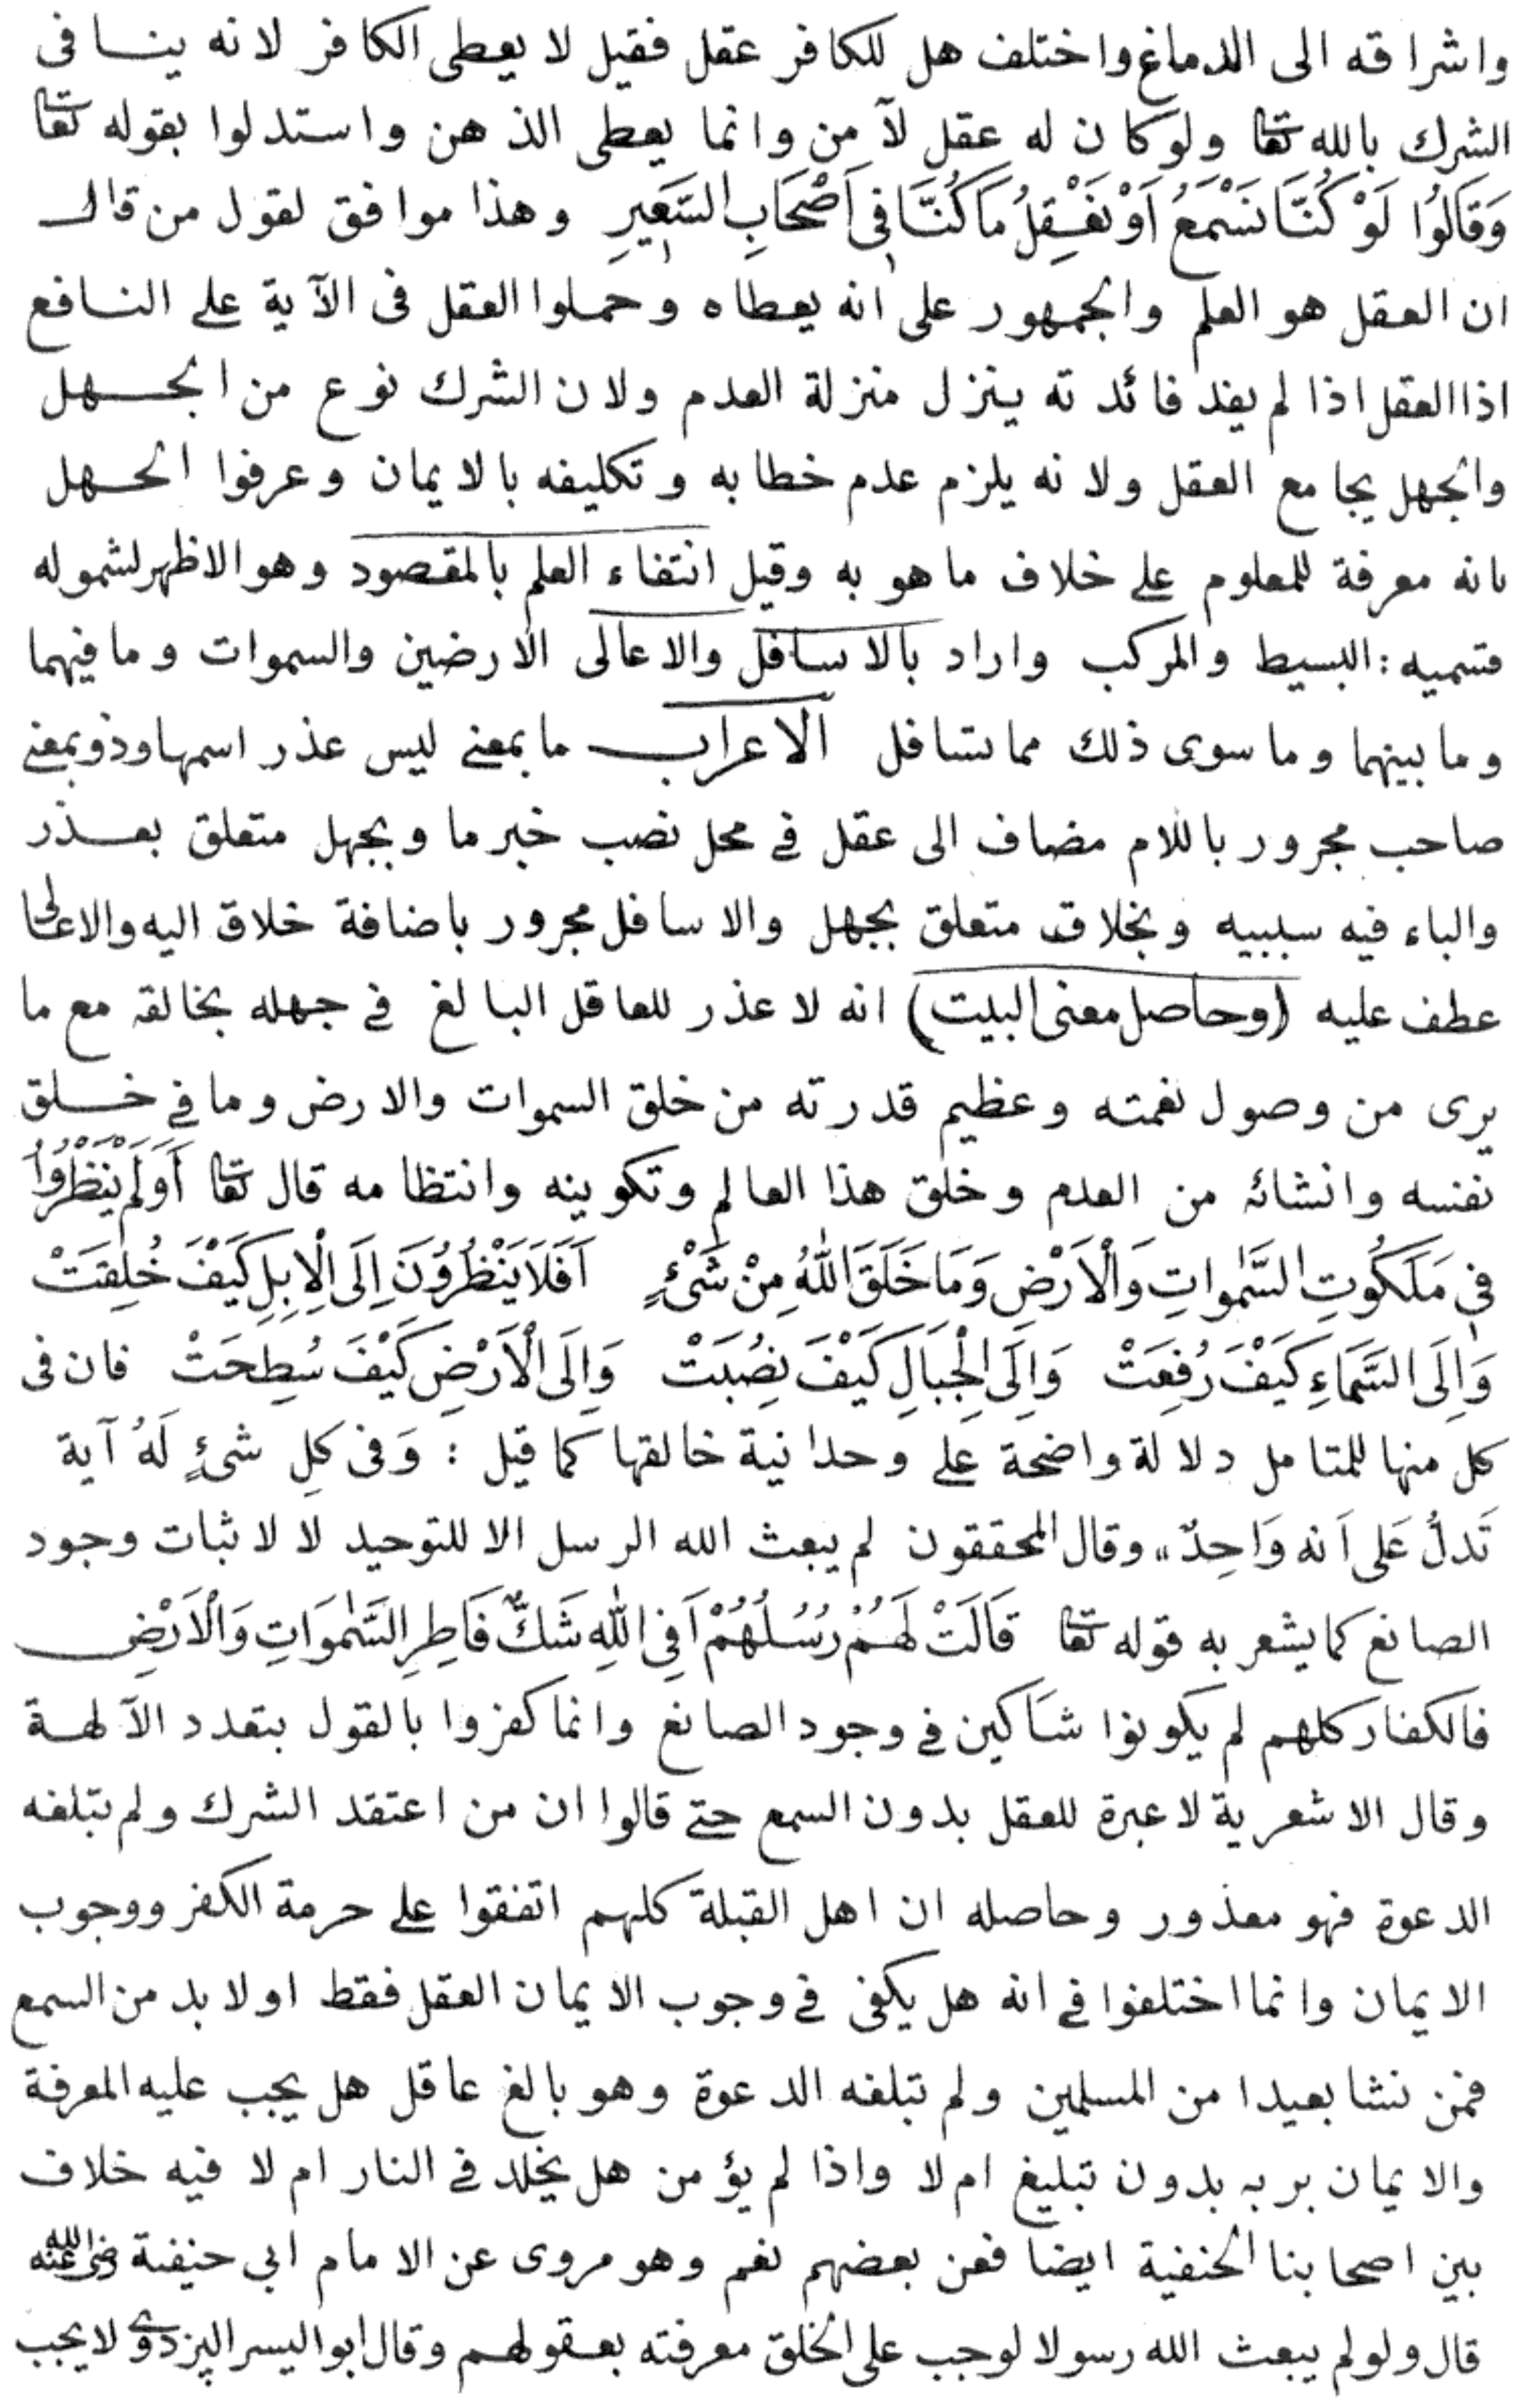 واشراقه الى الدماغ واختلف هل للكافر عقل فقيل لا يعطى الكافر لانه ينافى
الشرك بالله تعا ولو كان له عقل لآمن وانما يعطى الذهن واستدلوا بقوله تعا
وَقَالُوا لَوْ كُنَّا نَسْمَعُ اَوْ نَعْقِلُ مَا كُنَّا فِى اَصْحَابِ السَّعِيرِ وهذا موافق لقول من قال
ان العقل هو العلم والجمهور على انه يعطاه وحملوا العقل فى الآية على النافع
اذا العقل اذا لم يفد فائدته ينزل منزلة العدم ولان الشرك نوع من الجهل
والجهل يجامع العقل ولانه يلزم عدم خطابه وتكليفه بالايمان وعرفوا الجهل
بانه معرفة للمعلوم على خلاف ما هو به وقيل انتفاء العلم بالمقصود وهو الاظهر لشموله
قسميه : البسيط والمركب واراد بالاسافل والاعالى الارضين والسموات وما فيهما
وما بينهما وما سوى ذلك مما تسافل الاعراب ما بمعنى ليس عذر اسمها وذو بمعنى
صاحب مجرور باللام مضاف الى عقل فى محل نصب خبر ما وبجهل متعلق بعذر
والباء فيه سببيه وبخلاق متعلق بجهل والاسافل مجرور باضافة خلاق اليه والاعالى
عطف عليه (وحاصل معنى البيت) انه لا عذر للعاقل البالغ فى جهله بخالقه مع ما
يرى من وصول نعمته وعظيم قدرته من خلق السموات والارض وما فى خلق
نفسه وانشائه من العدم وخلق هذا العالم وتكوينه وانتظامه قال تعا اَوَلَمْ يَنْظُرُوا
فِى مَلَكُوتِ السَّمٰوَاتِ وَالْاَرْضِ وَمَا خَلَقَ اللهُ مِنْ شَىْءٍ اَفَلَا يَنْظُرُونَ اِلَى الْاِبِلِ كَيْفَ خُلِقَتْ
وَاِلَى السَّمَاءِ كَيْفَ رُفِعَتْ وَاِلَى الْجِبَالِ كَيْفَ نُصِبَتْ وَاِلَى الْاَرْضِ كَيْفَ سُطِحَتْ فان فى
كل منها للمتامل دلالة واضحة على وحدانية خالقها كما قيل : وَفى كلِ شئٍ لَهُ آية
تَدلُّ عَلى اَنه وَاحِدٌ ،، وقال المحققون لم يبعث الله الرسل الا للتوحيد لا لاثبات وجود
الصانع كما يشعر به قوله تعا قَالَتْ لَهُمْ رُسُلُهُمْ اَفِى اللهِ شَكٌّ فَاطِرِ السَّمٰوَاتِ وَالْاَرْضِ
فالكفار كلهم لم يكونوا شاكين فى وجود الصانع وانما كفروا بالقول بتعدد الآلهة
وقال الاشعرية لا عبرة للعقل بدون السمع حتى قالوا ان من اعتقد الشرك ولم تبلغه
الدعوة فهو معذور وحاصله ان اهل القبلة كلهم اتفقوا على حرمة الكفر ووجوب
الايمان وانما اختلفوا فى انه هل يكفى فى وجوب الايمان العقل فقط اولا بد من السمع
فمن نشا بعيدا من المسلمين ولم تبلغه الدعوة وهو بالغ عاقل هل يجب عليه المعرفة
والايمان بربه بدون تبليغ ام لا واذا لم يؤمن هل يخلد فى النار ام لا فيه خلاف
بين اصحابنا الحنفية ايضا فعن بعضهم نعم وهو مروى عن الامام ابى حنيفة رضى الله عنه
قال ولو لم يبعث الله رسولا لوجب على الخلق معرفته بعقولهم وقال ابو اليسر البزدوى لا يجب